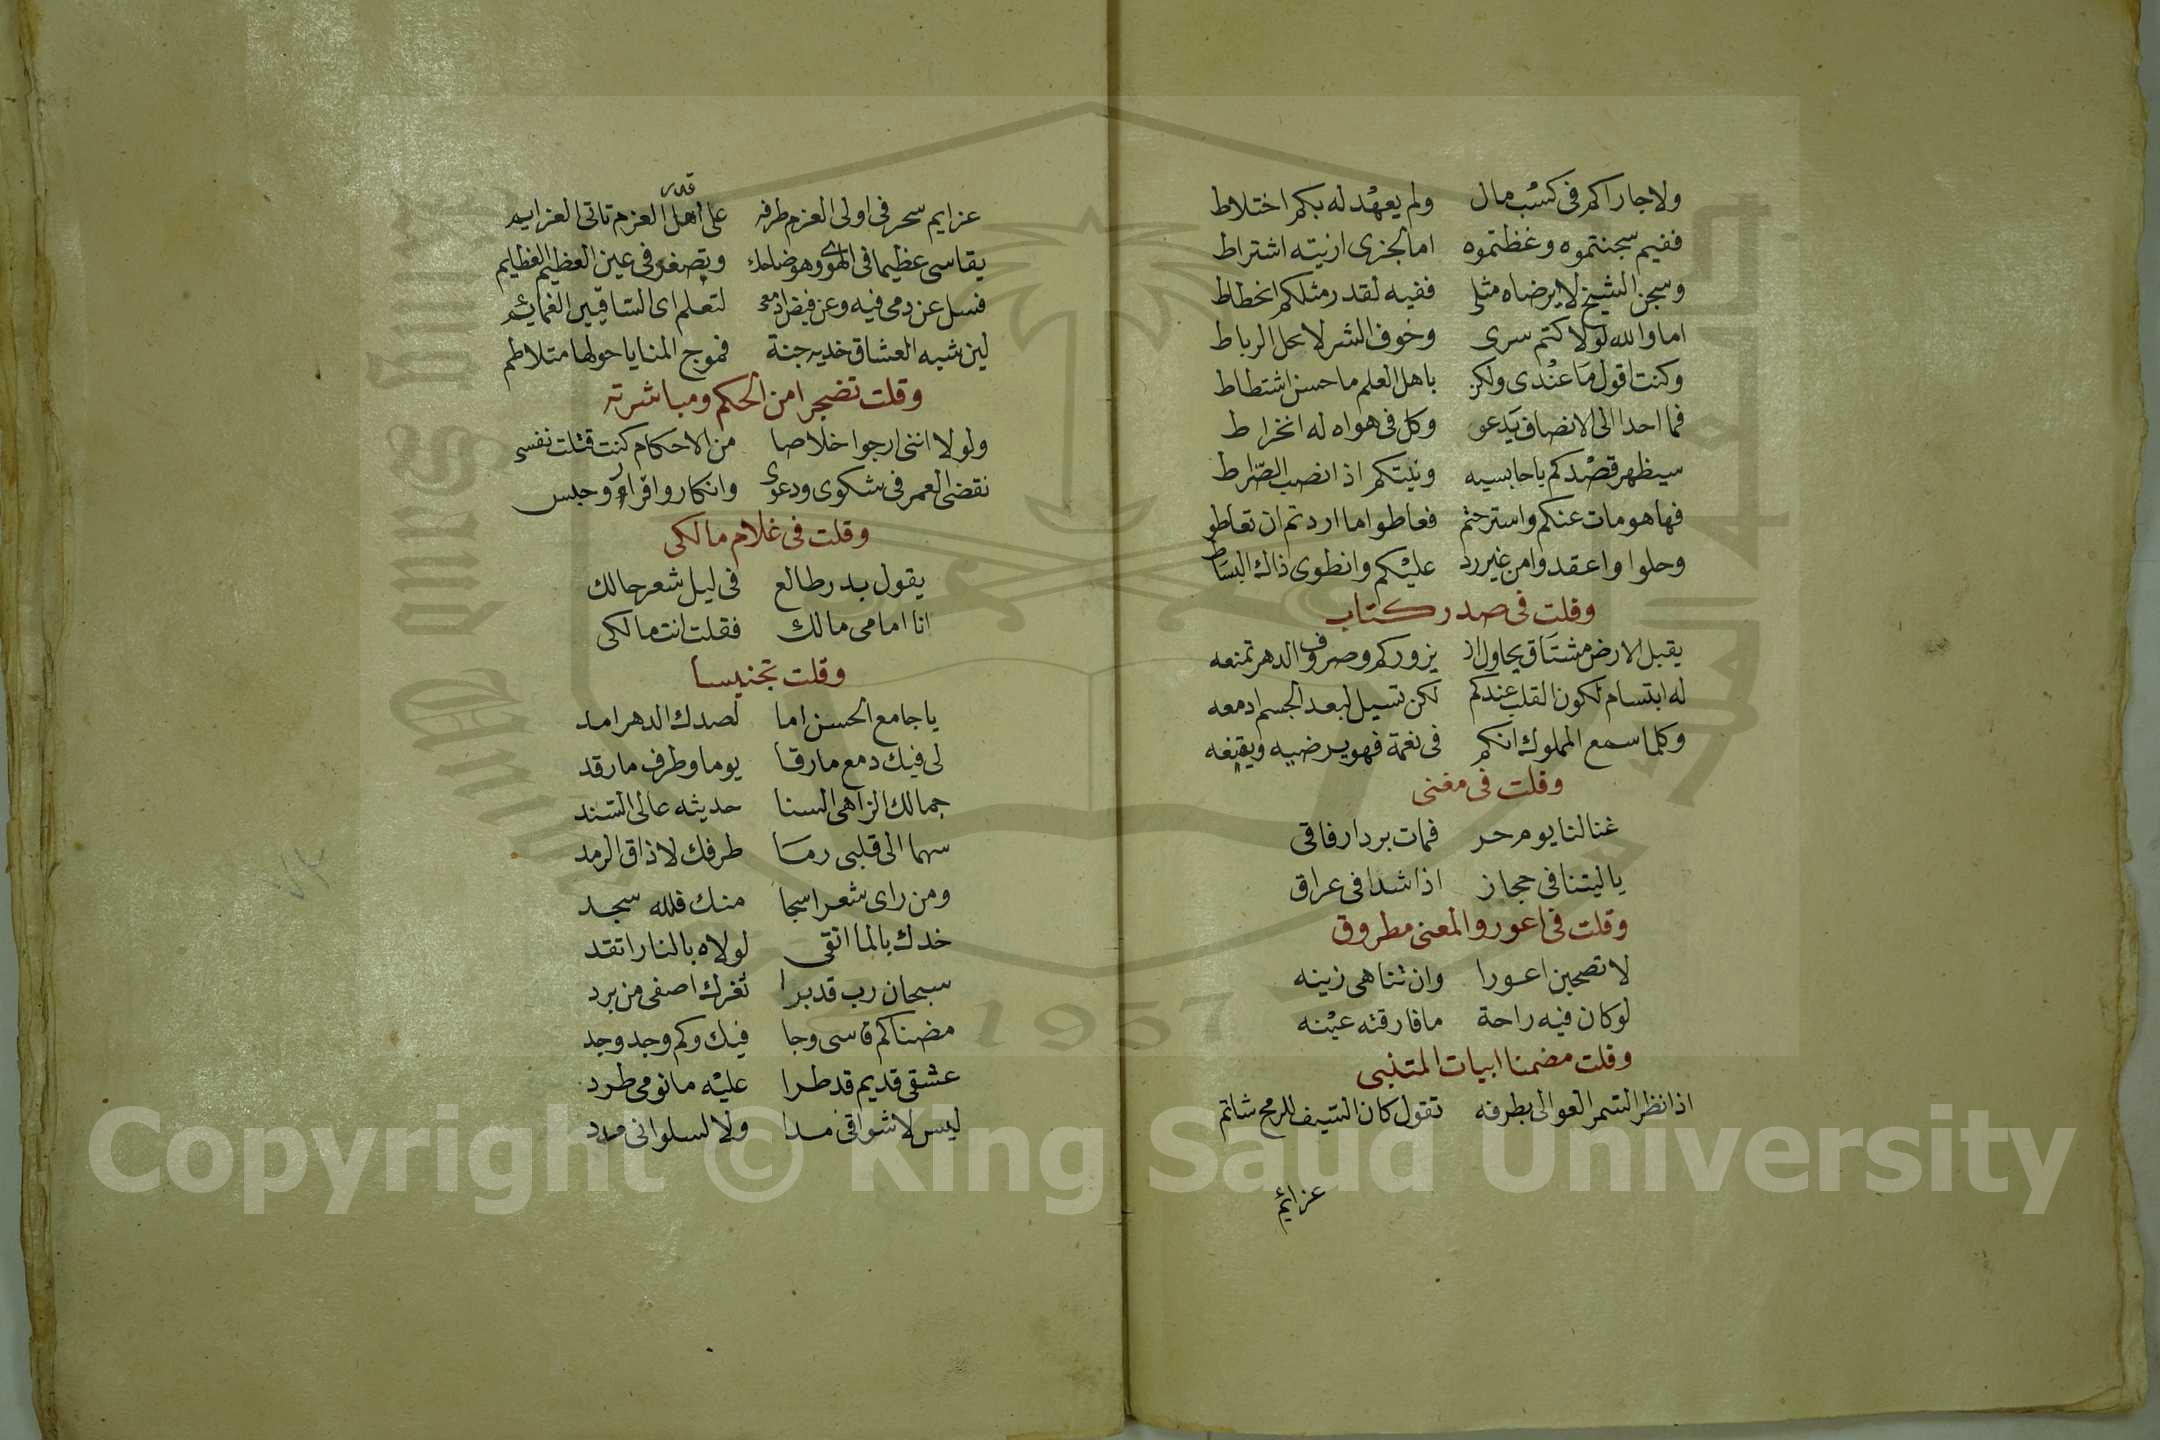 ولا جاراكم فى كسْب مال ولم يعهْد له بكم اختلاط
ففيم سجنتموه وغظتموه اما لجزى اذيته اشتراط
وسجن الشيخ لا يرضاه مثلى ففيه لقدر مثلكم انحطاط
اما والله لولا كتم سرى وخوف الشر لانحل الرباط
وكنت اقول مَا عنْدى ولكن باهل العلم ما حسن اشتطاط
فما احد الى الانصاف يَدعو وكل فى هواه له انخراط
سيظهر قصْدكم يا حابسيه ونيتكم اذا نصب الصّراط
فها هو مات عنكم واسترحتم فعاطوا ما اردتم ان تعاطو
وحلوا واعقدوا من غير رد عليْكم وانطوى ذاك البسَاط
وقلت فى صدر كتاب
يقبل الارض مشتَاق يحاول ان يزوركم وصروف الدهر تمنعه
له ابتسام لكون القلب عندكم لكن تسيل لبعد الجسم ادمعه
وكلما سمع المملوك انكم فى نعمة فهو يرضيه ويقنعه
وقلت فى مغنى
غنا لنا يوم حر فمات بردا رفاقى
يا ليتنا فى حجاز اذا شدا فى عراق
وقلت فى اعور والمعنى مطروق
لا تصحبن اعورا وان تناهى زينه
لو كان فيه راحة ما فارقته عيْنه
وقلت مضمنا ابيات المتنبى
اذا نظر السمر العوالى بطرفه تقول كان السّيف للرمح شاتم
عزايم
قدر
عزايم سحر فى اولى العزم طرفه على اهل العزم تاتى العزايم
يقاسى عظيما فى الهوى وهو ضاحك وتصغر فى عين العظيم العظايم
فسل عن دمى فيه وعن فيض ادمعى لتعلم اى السّاقيين الغمايم
لين شبه العشاق خديه جنة فموج المنايا حولها متلاطم
وقلت تضجرا من الحكم ومباشرته
ولولا اننى ارجوا خلاصا من الاحكام كنت قتلت نفسى
نقضى العمر فى شكوى ودعوى وانكار واقرار وحبس
وقلت فى غلام مالكى
يقول بدر طالع فى ليل شعر حالك
انا امامى مالك فقلت انت مالكى
وقلت تجنيسا
يا جامع الحسن اما لصدك الدهر امد
لى فيك دمع ما رقا يوما وطرف ما رقد
جمالك الزاهى السنا حديثه عالى السّند
سهما الى قلبى رمَا طرفك لا ذاق الرمد
ومن راى شعرا سجا منك فلله سجد
خدك بالما اتقى لولاه بالنار اتقد
سبحان رب قد برا ثغرك اصفى من برد
مضناكم قاسى وجا فيك وكم وجد وجد
عشقى قديم قد طرا عليْه ما نومى طرد
ليس لاشواقى مدا ولا لسلوانى مدد